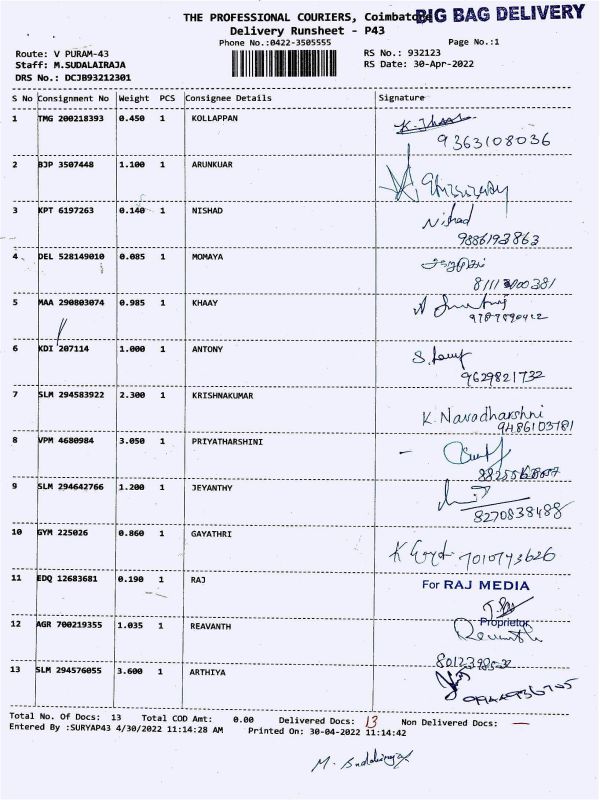 THE PROFESSIONAL COURIERS, Coimbatore
BIG BAG DELIVERY
Delivery Runsheet - P43
Phone No.:0422-3505555
Page No.:1
Route: V PURAM-43
RS No.: 932123
Staff: M.SUDALAIRAJA
RS Date: 30-Apr-2022
DRS No.: DCJB93212301
S No Consignment No Weight PCS Consignee Details Signature
1 TMG 200218393 0.450 1 KOLLAPPAN
9363108036
2 BJP 3507448 1.100 1 ARUNKUAR
3 KPT 6197263 0.140 1 NISHAD Nishad
9886193863
4 DEL 528149010 0.085 1 MOMAYA
5 MAA 290803074 0.985 1 KHAAY
6 KDI 207114 1.000 1 ANTONY
9629821732
7 SLM 294583922 2.300 1 KRISHNAKUMAR
K. Navadharshni
9486103781
8 VPM 4680984 3.050 1 PRIYATHARSHINI
9 SLM 294642766 1.200 1 JEYANTHY
8270838488
10 GYM 225026 0.860 1 GAYATHRI
7010743626
11 EDQ 12683681 0.190 1 RAJ For RAJ MEDIA
Proprietor
12 AGR 700219355 1.035 1 REAVANTH Revanth
13 SLM 294576055 3.600 1 ARTHIYA
Total No. Of Docs: 13 Total COD Amt: 0.00 Delivered Docs: 13 Non Delivered Docs: —
Entered By :SURYAP43 4/30/2022 11:14:28 AM Printed On: 30-04-2022 11:14:42